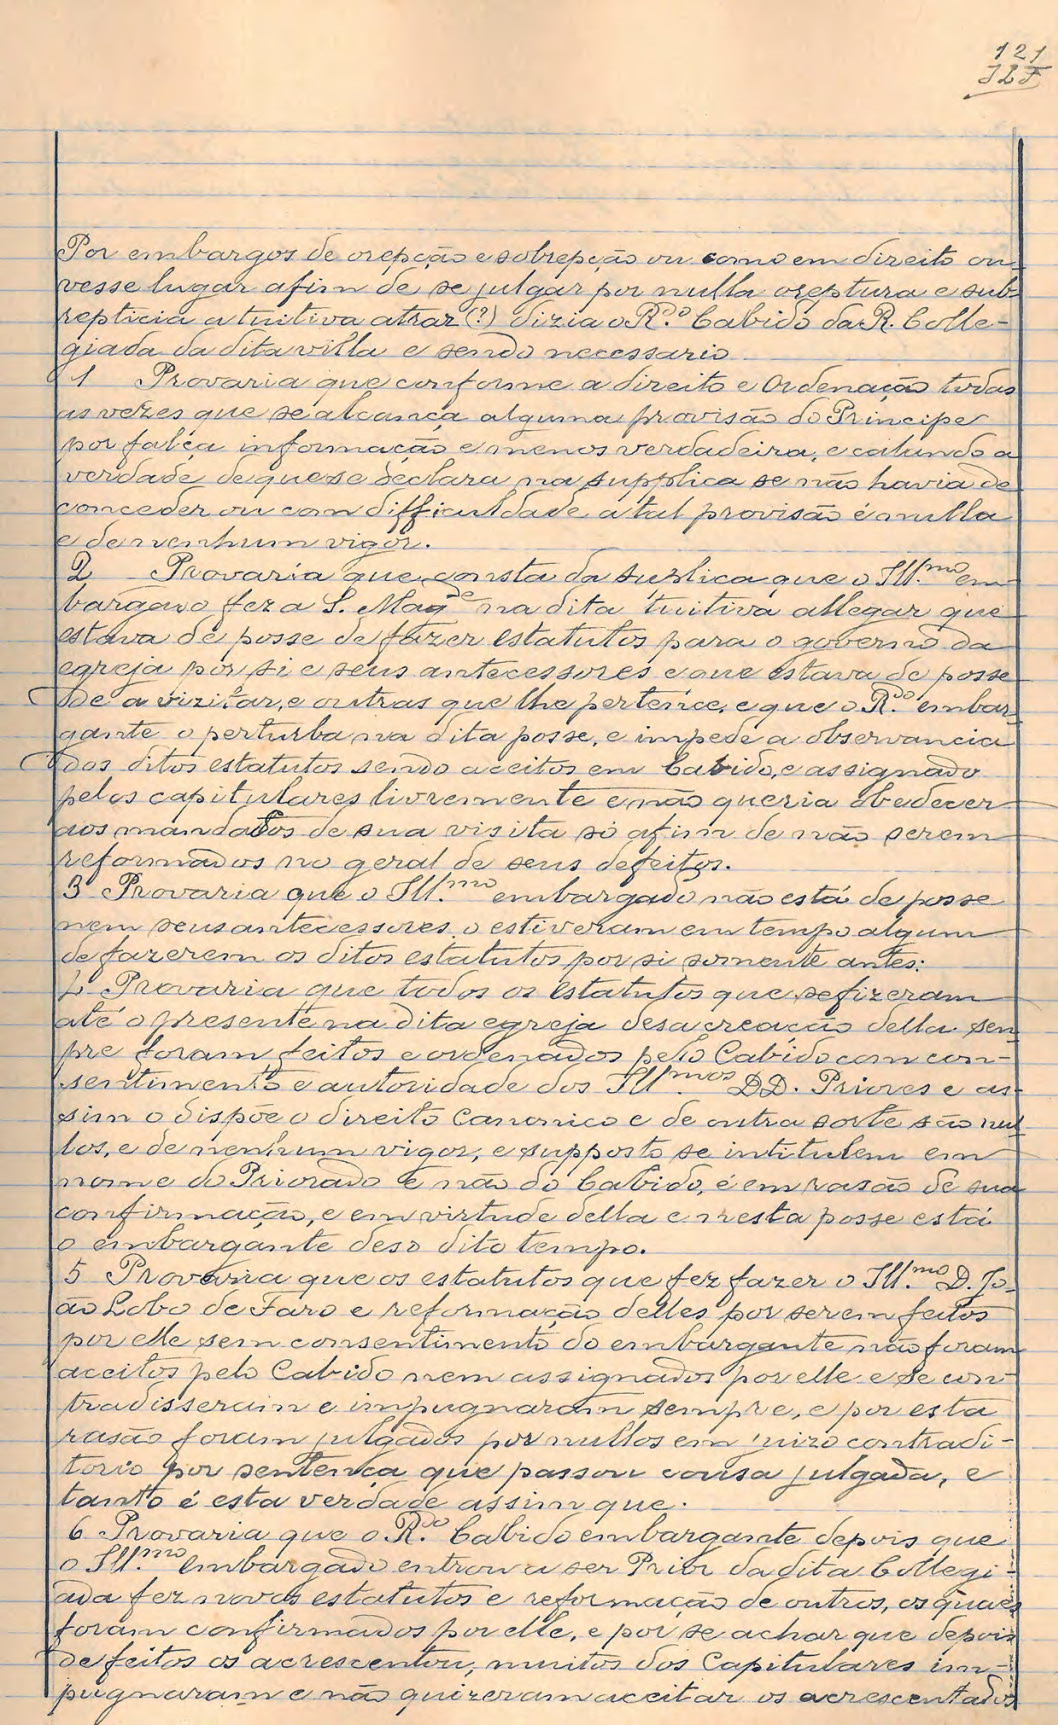 121
JLF
Por embargos de orepção e sobrepção ou como em direito ou-
vesse lugar afim de se julgar por nulla oreptura e sub-
repticia a tuitiva atraz (?) dizia o R.do Cabido da R. Colle-
giada da dita villa e sendo necessario
1 Provaria que conforme a direito e Ordenação todas
as vezes que se alcança alguma provisão do Principe
por falça informação e menos verdadeira, e calando a
verdade de que se declara na supplica se não havia de
conceder ou com difficuldade a tal provisão é nulla
e de nenhum vigor.
2 Provaria que consta da suplica que o Ill.mo em-
bargado fez a S. Mag.de na dita tuitiva allegar que
estava de posse de fazer estatutos para o governo da
egreja por si e seus antecessores e que estava de posse
de a vizitar, e outras que lhe pertence, e que o R.do embar-
gante o perturba na dita posse, e impede a observancia
dos ditos estatutos sendo aceitos em Cabido, e assignado
pelos capitulares livremente e não queria obedecer
aos mandados de sua visita só afim de não serem
reformados no geral de seus defeitos.
3 Provaria que o Ill.mo embargado não está de posse
nem seus antecessores o estiveram em tempo algum
de fazerem os ditos estatutos por si somente antes:
4 Provaria que todos os estatutos que se fizeram
até o presente na dita egreja desa creação della sem-
pre foram feitos e ordenados pelo Cabido com con-
sentimento e autoridade dos Ill.mos DD. Priores e as-
sim o dispõe o direito canonico e de outra sorte são nul-
los, e de nenhum vigor, e supposto se intitulem em
nome do Priorado e não do Cabido, é em rasão de sua
confirmação, e em virtude della e nesta posse está
o embargante deso dito tempo.
5 Provaria que os estatutos que fez fazer o Ill.mo D. Jo-
ão Lobo de Faro e reformação delles por serem feitos
por elle sem consentimento do embargante não foram
aceitos pelo Cabido nem assignados por elle e se con-
tradisseram e impugnaram sempre, e por esta
rasão foram julgados por nullos em juizo contradi-
torio por sentença que passou cousa julgada, e
tanto é esta verdade assim que.
6 Provaria que o R.do Cabido embargante depois que
o Ill.mo embargado entrou a ser Prior da dita Collegi-
ada fez novos estatutos e reformação de outros, os quaes
foram confirmados por elle, e por se achar que depois
de feitos os acrescentou, muitos dos Capitulares im-
pugnaram e não quizeram aceitar os acrescentados